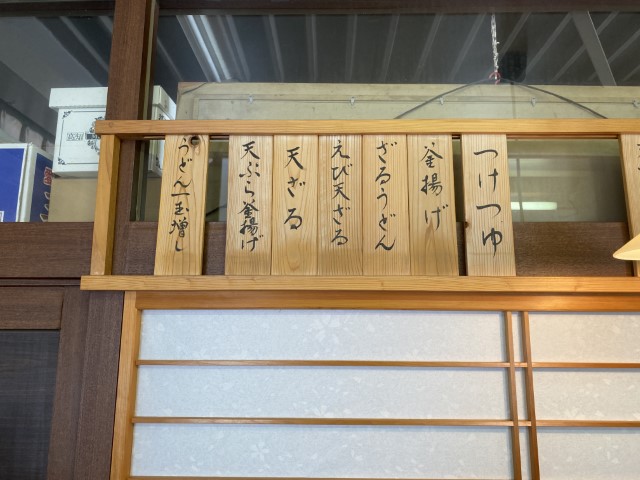 つけつゆ
釜揚げ
ざるうどん
えび天ざる
天ざる
天ぷら釜揚げ
うどん一玉増し